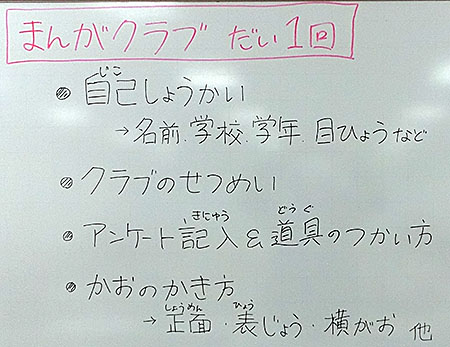 まんがクラブ だい1回
じこ
● 自己しょうかい
→名前、学校、学年、目ひょうなど
● クラブのせつめい
きにゅう どうぐ
● アンケート記入&道具のつかい方
● かおのかき方
しょうめん ひょう
→正面・表じょう・横がお 他